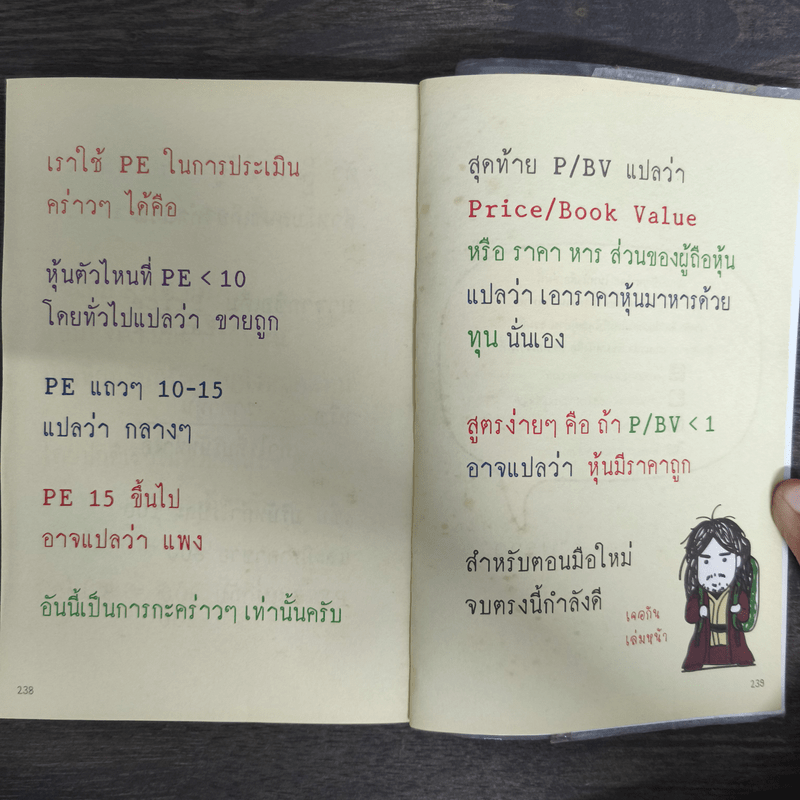 เราใช้ PE ในการประเมิน
คร่าวๆ ได้คือ
หุ้นตัวไหนที่ PE < 10
โดยทั่วไปแปลว่า ขายถูก
PE แถวๆ 10-15
แปลว่า กลางๆ
PE 15 ขึ้นไป
อาจแปลว่า แพง
อันนี้เป็นการกะคร่าวๆ เท่านั้นครับ
238
สุดท้าย P/BV แปลว่า
Price/Book Value
หรือ ราคา หาร ส่วนของผู้ถือหุ้น
แปลว่า เอาราคาหุ้นมาหารด้วย
ทุน นั่นเอง
สูตรง่ายๆ คือ ถ้า P/BV < 1
อาจแปลว่า หุ้นมีราคาถูก
สำหรับตอนมือใหม่
จบตรงนี้กำลังดี
เจอกัน
เล่มหน้า
239